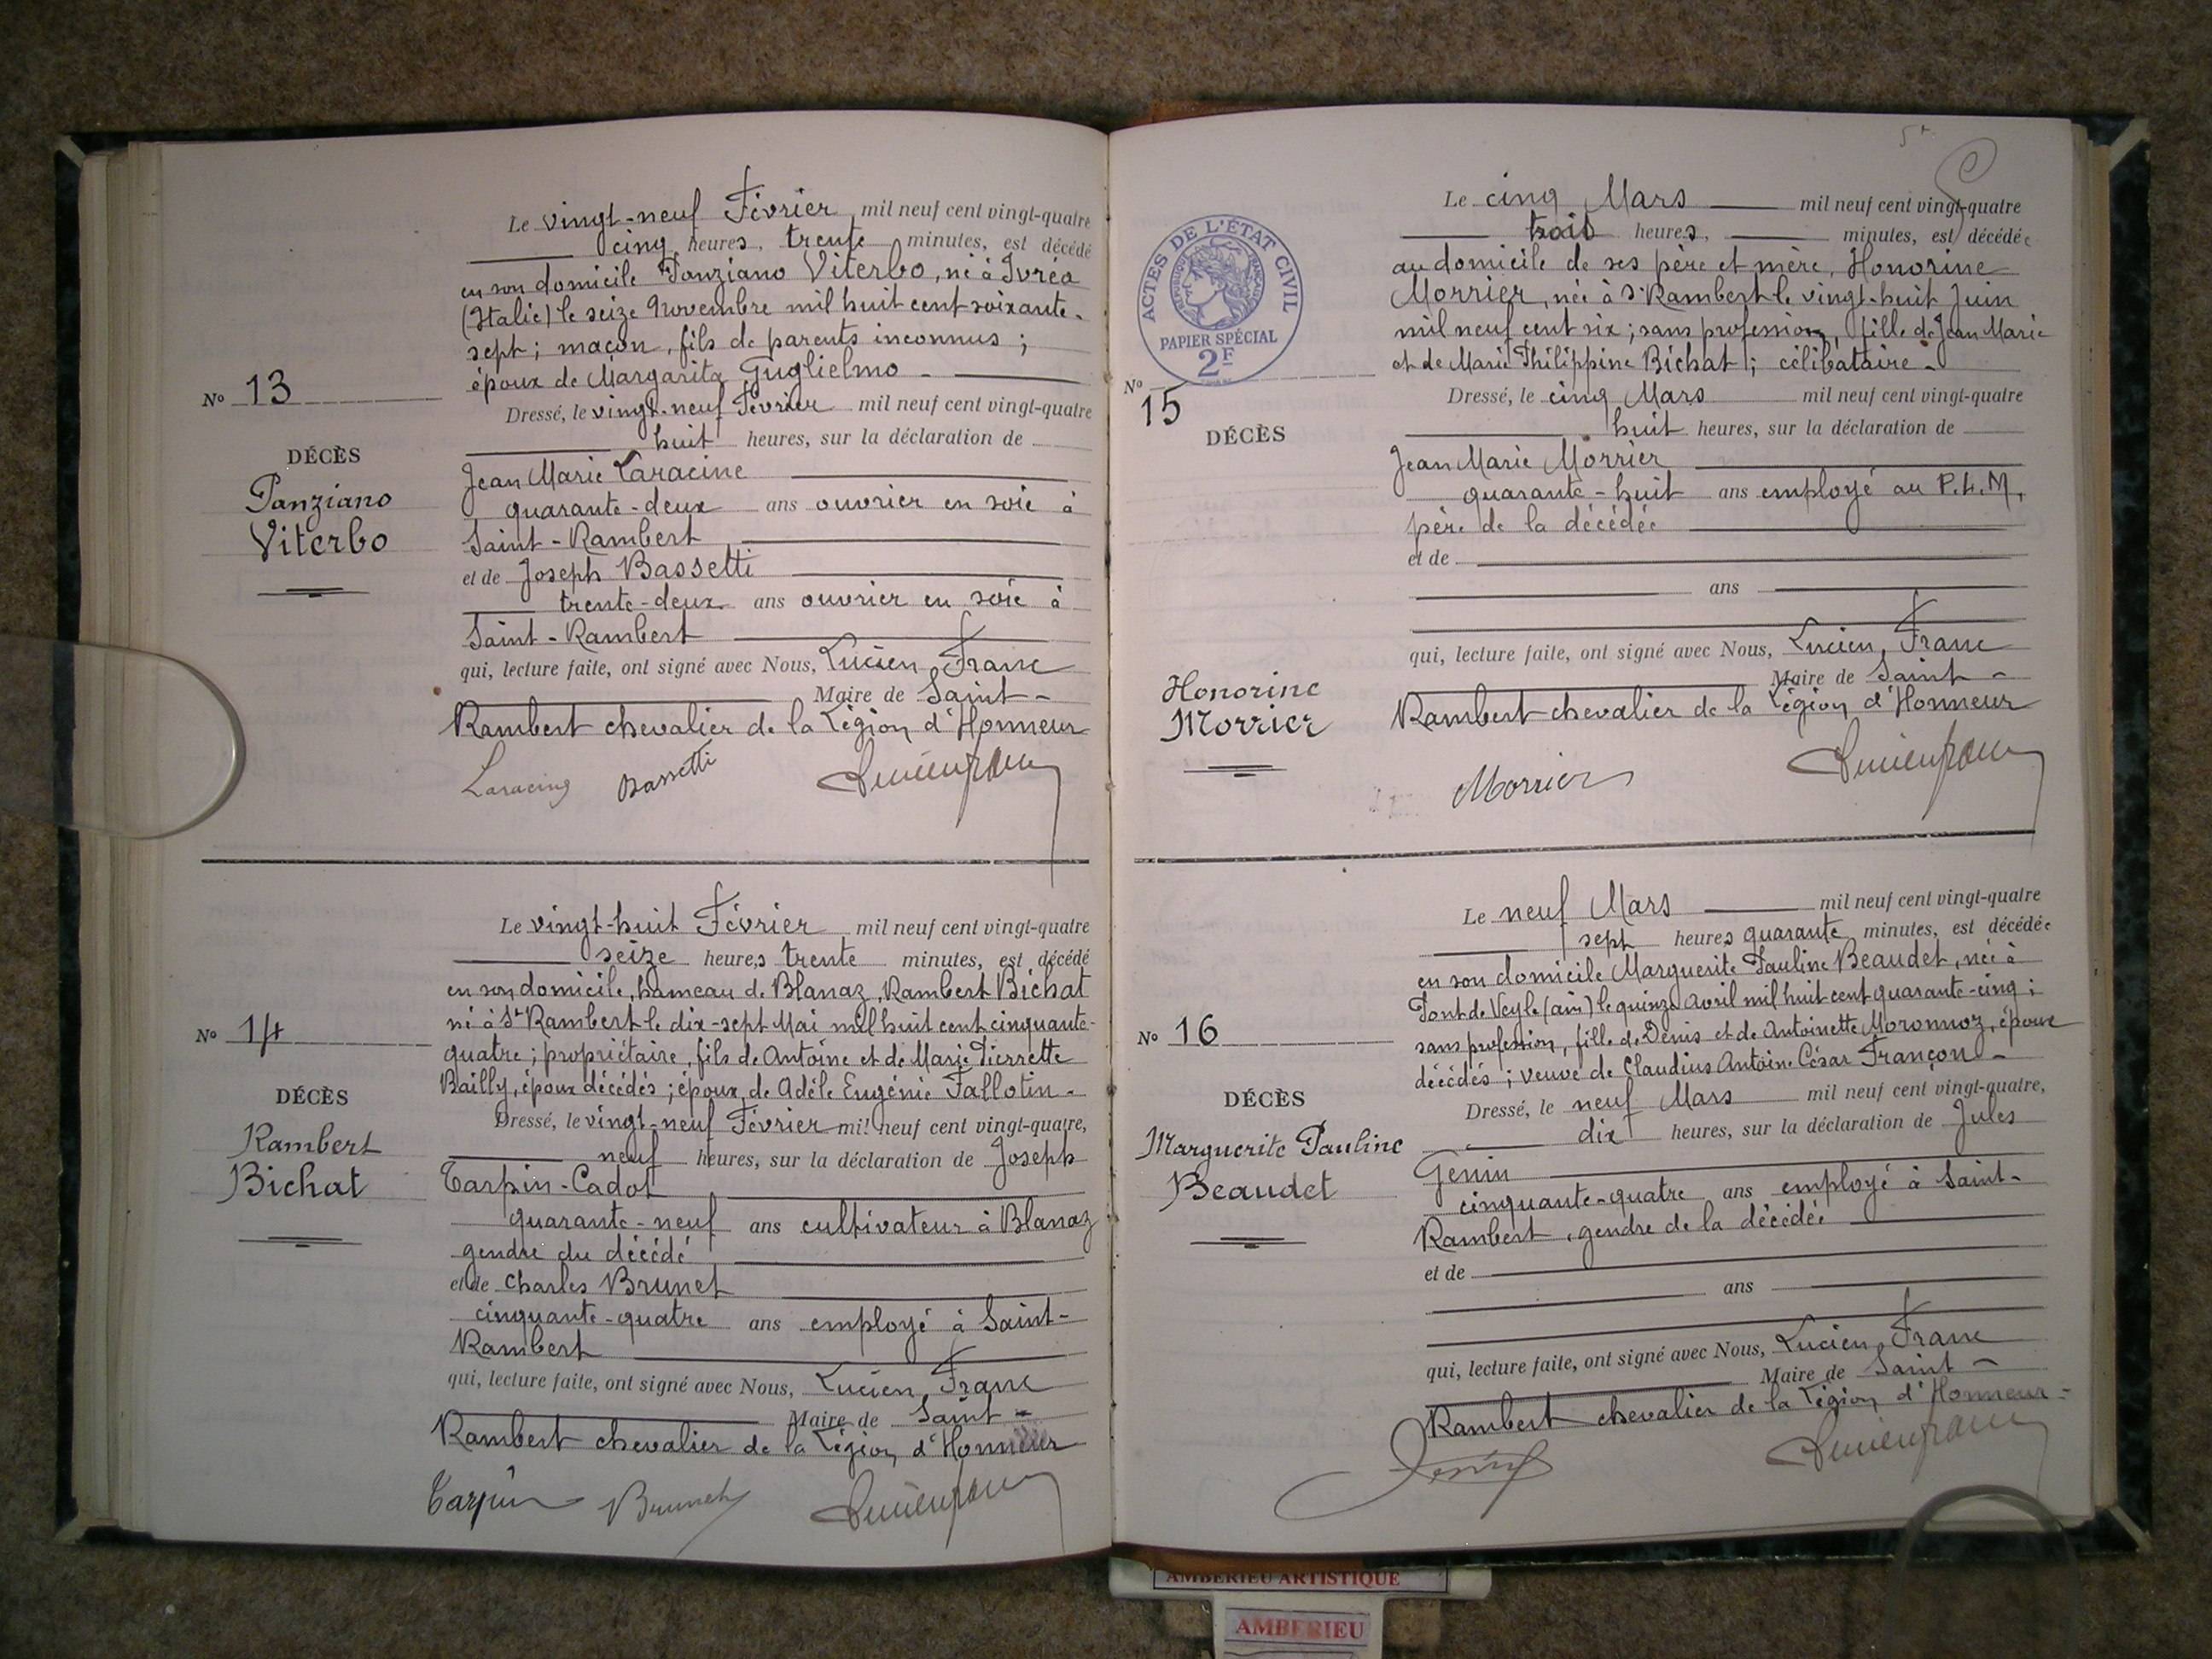 Le vingt-neuf Février mil neuf cent vingt-quatre
cinq heures, trente minutes, est décédé
en son domicile Panziano Viterbo, né à Ivréa
(Italie) le seize Novembre mil huit cent soixante-
sept; maçon, fils de parents inconnus;
époux de Margarita Guglielmo -
No 13
Dressé, le vingt-neuf Février mil neuf cent vingt-quatre
huit heures, sur la déclaration de
DÉCÈS
Panziano
Viterbo
Jean Marie Laracine
quarante-deux ans ouvrier en soie à
Saint-Rambert
et de Joseph Bassetti
trente-deux ans ouvrier en soie à
Saint-Rambert
qui, lecture faite, ont signé avec Nous, Lucien Franc
Maire de Saint-
Rambert chevalier de la Légion d'Honneur
Laracine Bassetti Lucien Franc
Le vingt-huit Février mil neuf cent vingt-quatre
seize heures trente minutes, est décédé
en son domicile, hameau de Blanaz, Rambert Bichat
né à St Rambert le dix-sept Mai mil huit cent cinquante-
quatre; propriétaire, fils de Antoine et de Marie Pierrette
Bailly, époux décédés; époux de Adèle Eugénie Fallotin -
No 14
DÉCÈS
Rambert
Bichat
Dressé, le vingt-neuf Février mil neuf cent vingt-quatre,
neuf heures, sur la déclaration de Joseph
Tarpin-Cadot
quarante-neuf ans cultivateur à Blanaz
gendre du décédé
et de Charles Brunet
cinquante-quatre ans employé à Saint-
Rambert
qui, lecture faite, ont signé avec Nous, Lucien Franc
Maire de Saint-
Rambert chevalier de la Légion d'Honneur
Tarpin Brunet Lucien Franc
ACTES DE L'ÉTAT CIVIL
RÉPUBLIQUE FRANÇAISE
PAPIER SPÉCIAL
2F
Le cinq Mars mil neuf cent vingt-quatre
trois heures, minutes, est décédée
au domicile de ses père et mère, Honorine
Morrier, née à St Rambert le vingt-huit Juin
mil neuf cent six; sans profession, fille de Jean Marie
et de Marie Philippine Bichat; célibataire -
No 15
DÉCÈS
Honorine
Morrier
Dressé, le cinq Mars mil neuf cent vingt-quatre
huit heures, sur la déclaration de
Jean Marie Morrier
quarante-huit ans employé au P.L.M,
père de la décédée
et de
ans
qui, lecture faite, ont signé avec Nous, Lucien Franc
Maire de Saint-
Rambert chevalier de la Légion d'Honneur
Morrier Lucien Franc
Le neuf Mars mil neuf cent vingt-quatre
sept heures quarante minutes, est décédée
en son domicile Marguerite Pauline Beaudet, née à
Pont de Veyle (ain) le quinze avril mil huit cent quarante-cinq;
sans profession, fille de Denis et de Antoinette Moronnoz, époux
décédés; veuve de Claudius Antoine César Françon -
No 16
DÉCÈS
Marguerite Pauline
Beaudet
Dressé, le neuf Mars mil neuf cent vingt-quatre,
dix heures, sur la déclaration de Jules
Genin
cinquante-quatre ans employé à Saint-
Rambert, gendre de la décédée
et de
ans
qui, lecture faite, ont signé avec Nous, Lucien Franc
Maire de Saint-
Rambert chevalier de la Légion d'Honneur -
Genin Lucien Franc
AMBERIEU ARTISTIQUE
AMBERIEU